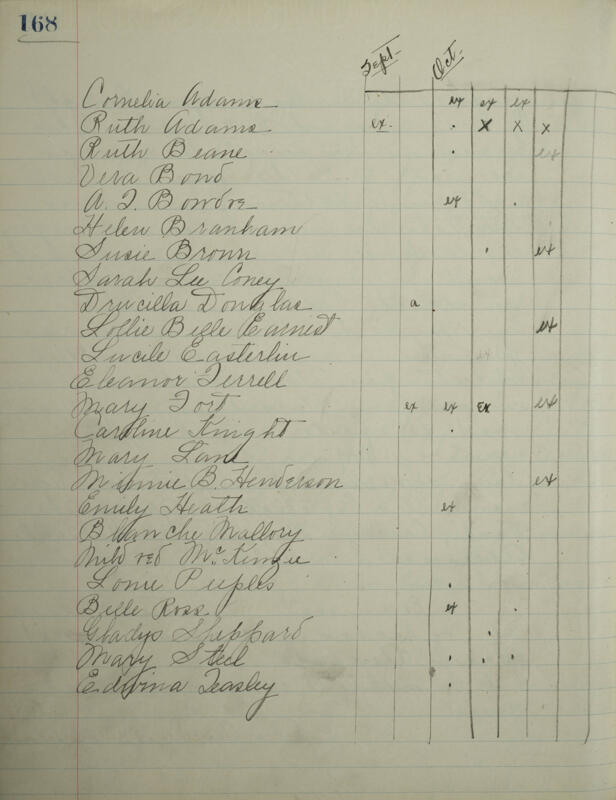 168
Sept. Oct.
Cornelia Adams ex ex ex
Ruth Adams ex. . x x x
Ruth Beane . ex
Vera Bond
A. J. Bowdre ex .
Helen Branham
Susie Brown . ex
Sarah Lee Coney
Drucilla Douglas a
Lollie Belle Earnest ex
Lucile Easterlin ex
Eleanor Ferrell
Mary Fort ex ex ex ex
Caroline Knight .
Mary Lane
Minnie B. Henderson ex
Emily Heath ex
Blanche Mallory
Mildred McKenzie
Lonie Peeples .
Belle Ross ex .
Gladys Sheppard .
Mary Steel . . .
Edwina Teasley .